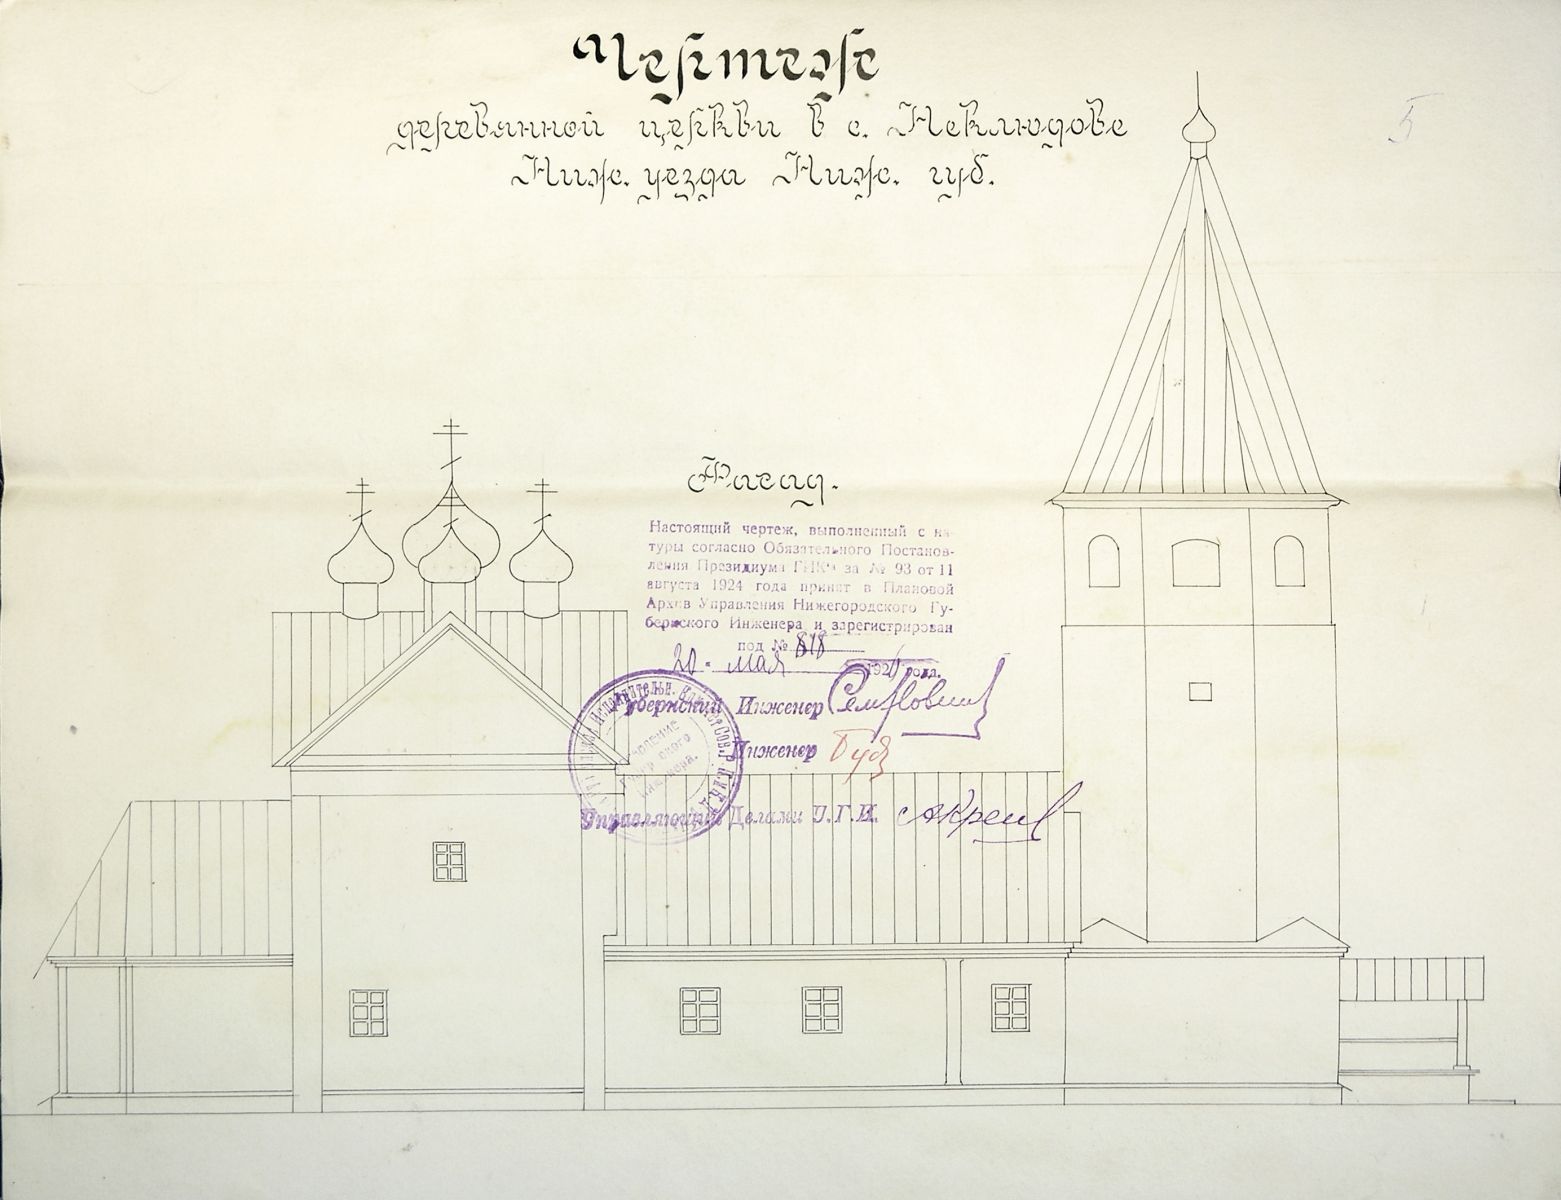 Чертеж
деревянной церкви в с. Неклюдове
Ниж. уезда Ниж. губ.
5
Фасад.
Настоящий чертеж, выполненный с на-
туры согласно Обязательного Постанов-
ления Президиума ГИК'а за № 93 от 11
августа 1924 года принят в Плановой
Архив Управления Нижегородского Гу-
бернского Инженера и зарегистрирован
под № 818
20. мая 192 года.
Губернский Инженер
Инженер
Управляющий Делами У.Г.И.